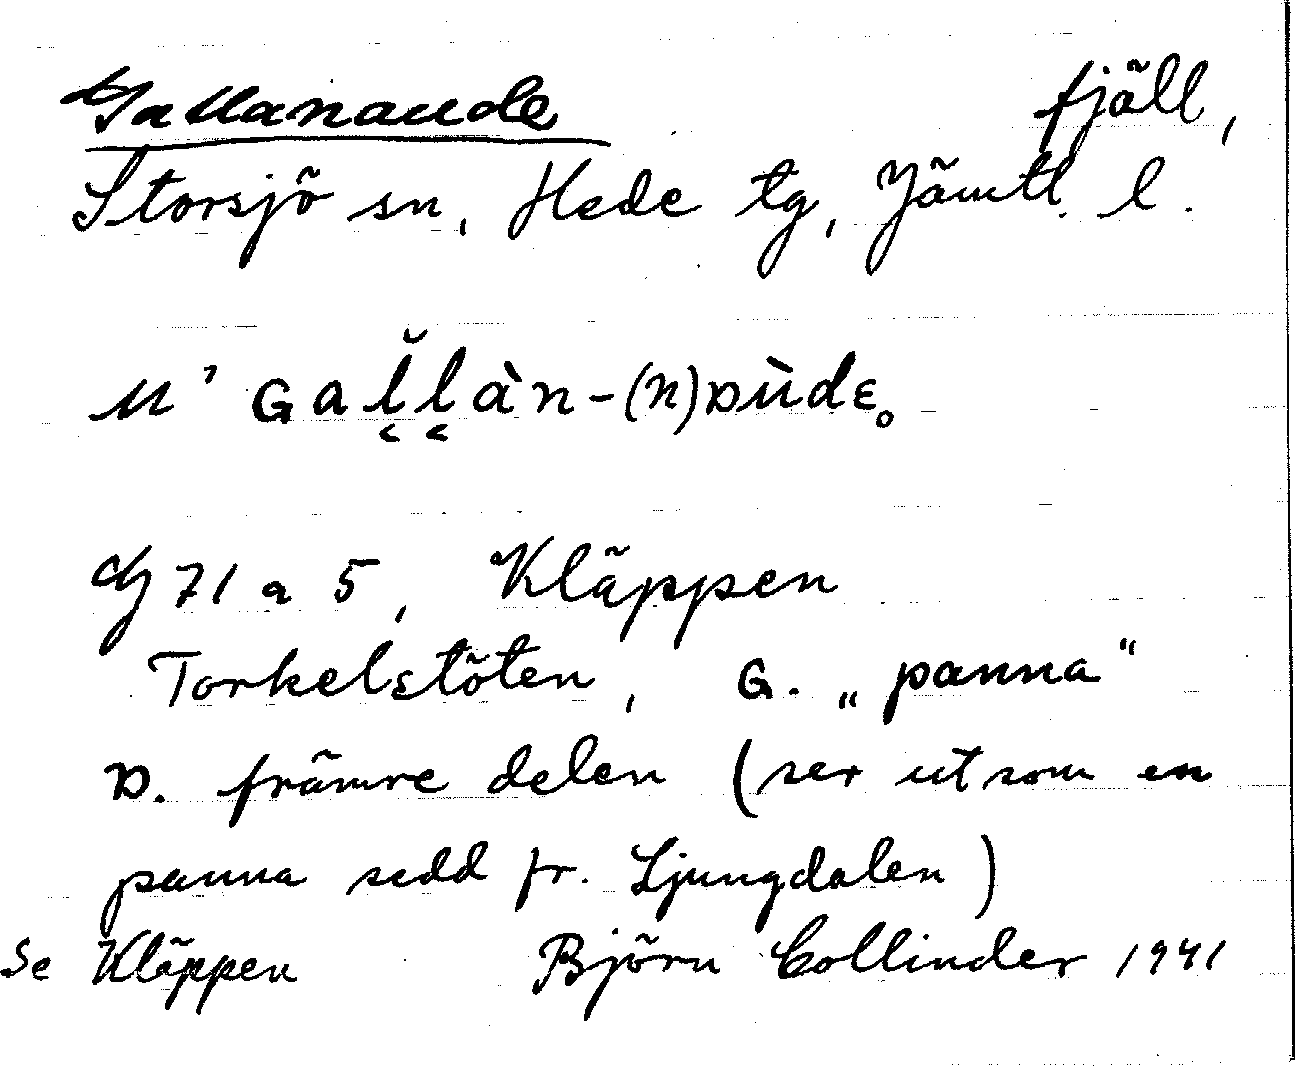 Gallanaude fjäll,
Storsjö sn, Hede tg, Jämtl. l.
M' Gal̆làn-(n)Dùdɛ。
G 71 a 5, Kläppen
Torkelstöten, G. „panna“
D. främre delen (ser ut som en
panna sedd fr. Ljungdalen)
Se Kläppen Björn Collinder 1941